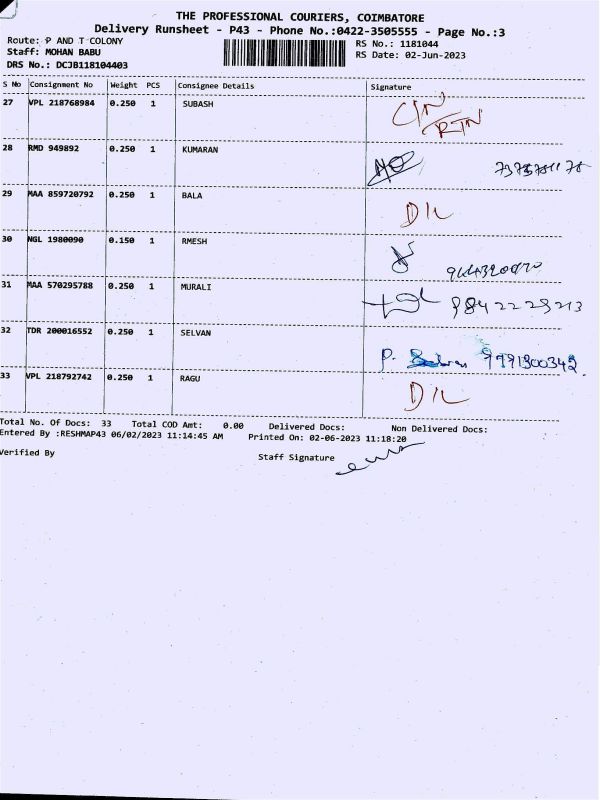 THE PROFESSIONAL COURIERS, COIMBATORE
Delivery Runsheet - P43 - Phone No.:0422-3505555 - Page No.:3
Route: P AND T COLONY
RS No.: 1181044
Staff: MOHAN BABU
RS Date: 02-Jun-2023
DRS No.: DCJB118104403
S No Consignment No Weight PCS Consignee Details Signature
27 VPL 218768984 0.250 1 SUBASH CIN/RTN
28 RMD 949892 0.250 1 KUMARAN
29 MAA 859720792 0.250 1 BALA D/L
30 NGL 1980090 0.150 1 RMESH
31 MAA 570295788 0.250 1 MURALI 9842229213
32 TDR 200016552 0.250 1 SELVAN P. 9791300342
33 VPL 218792742 0.250 1 RAGU D/L
Total No. Of Docs: 33 Total COD Amt: 0.00 Delivered Docs: Non Delivered Docs:
Entered By :RESHMAP43 06/02/2023 11:14:45 AM Printed On: 02-06-2023 11:18:20
Verified By Staff Signature